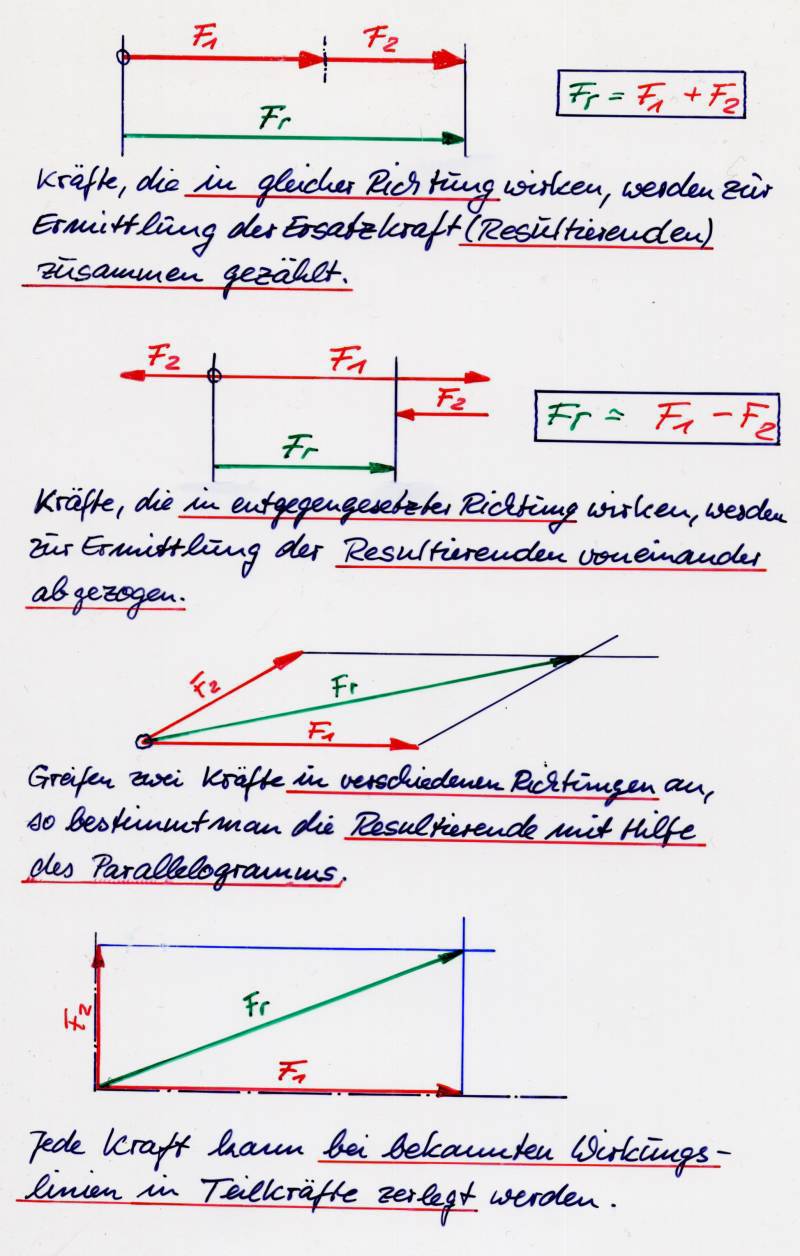 F1 F2
Fr
Fr = F1 + F2
Kräfte, die in gleicher Richtung wirken, werden zur
Ermittlung der Ersatzkraft (Resultierenden)
zusammen gezählt.
F2 F1
F2
Fr
Fr = F1 - F2
Kräfte, die in entgegengesetzter Richtung wirken, werden
zur Ermittlung der Resultierenden voneinander
abgezogen.
F2
Fr
F1
Greifen zwei Kräfte in verschiedenen Richtungen an,
so bestimmt man die Resultierende mit Hilfe
des Parallelogramms.
F2
Fr
F1
Jede Kraft kann bei bekannten Wirkungs-
linien in Teilkräfte zerlegt werden.